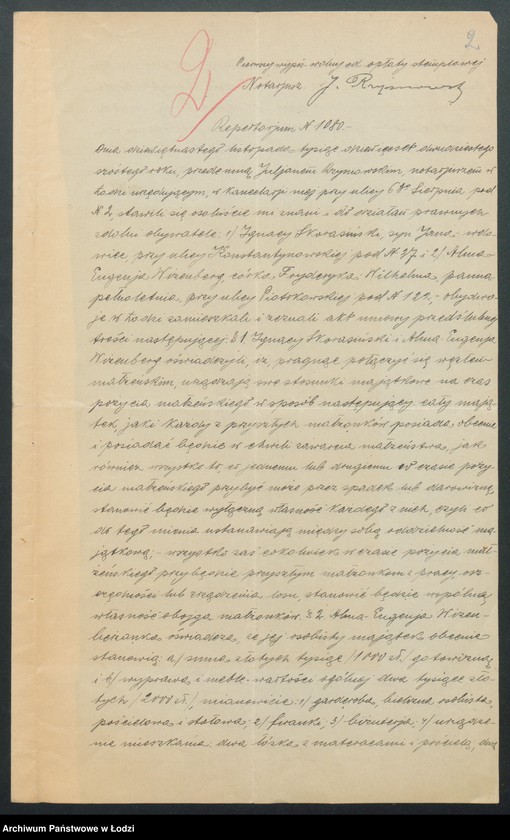 2
2
Pierwszy wypis wolny od opłaty stemplowej
Notarjusz J. Rzymowski
Repertorium N 1080.-
Dnia dziewiętnastego listopada tysiąc dziewięćset dwudziestego
szóstego roku, przedemną Juljanem Rzymowskim, notarjuszem w
Łodzi urzędującym, w kancelarji mej przy ulicy 6go Sierpnia pod
N 2, stawili się osobiście mi znani i do działań prawnych
zdolni obywatele: 1/ Ignacy Skorasiński, syn Jana,- wdo-
wiec, przy ulicy Konstantynowskiej pod N 37 i 2/ Alma-
Eugenja Wizenberg, córka Fryderyka-Wilhelma, panna
pełnoletnia, przy ulicy Piotrkowskiej pod N 121,- obydwo-
je w Łodzi zamieszkali i zeznali akt umowy przedślubnej
treści następującej: § 1 Ignacy Skorasiński i Alma-Eugenja
Wizenberg oświadczyli, iż, pragnąc połączyć się węzłem
małżeńskim, urządzają swe stosunki majątkowe na czas
pożycia małżeńskiego w sposób następujący: cały mają-
tek, jaki każdy z przyszłych małżonków posiada obecnie
i posiadać będzie w chwili zawarcia małżeństwa, jak
również wszystko to, co jednemu lub drugiemu w czasie poży-
cia małżeńskiego przybyć może przez spadek lub darowiznę,
stanowić będzie wyłączną własność każdego z nich, czyli co
do tego mienia ustanawiają między sobą oddzielność ma-
jątkową;- wszystko zaś cokolwiek w czasie pożycia mał-
żeńskiego przybędzie przyszłym małżonkom z pracy, osz-
czędności lub zrządzenia losu, stanowić będzie wspólną
własność obojga małżonków. § 2 Alma-Eugenja Wizen-
berżanka oświadcza, że jej osobisty majątek obecnie
stanowią: a/ suma złotych tysiąc /1000 zł./ gotowizną
i b/ wyprawa i meble wartości ogólnej dwa tysiące zło-
tych /2000 zł./, mianowicie: 1/ garderoba, bielizna osobista,
pościelowa i stołowa; 2/ firanki; 3/ biżuterja; 4/ urządze-
nie mieszkania: dwa łóżka z materacami i pościelą, dwie
Archiwum Państwowe w Łodzi